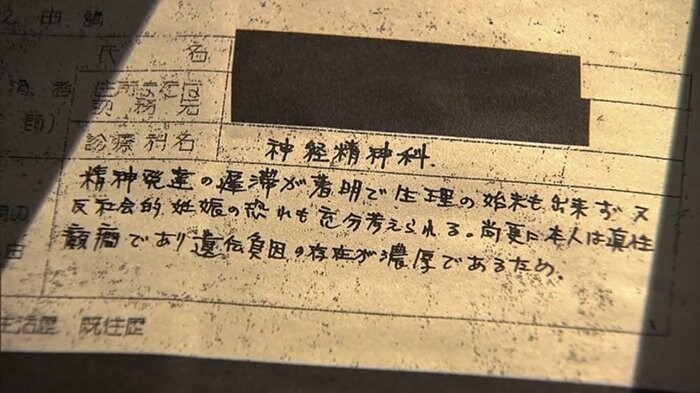 申請
氏名
住所または
勤務先
師)
診療科名
神経精神科
精神発達の遅滞が著明で生理の始末も出来ず又
反社会的妊娠の恐れも充分考えられる。尚更に本人は真性
癲癇であり遺伝負因の存在が濃厚であるため.
生活歴 既往歴